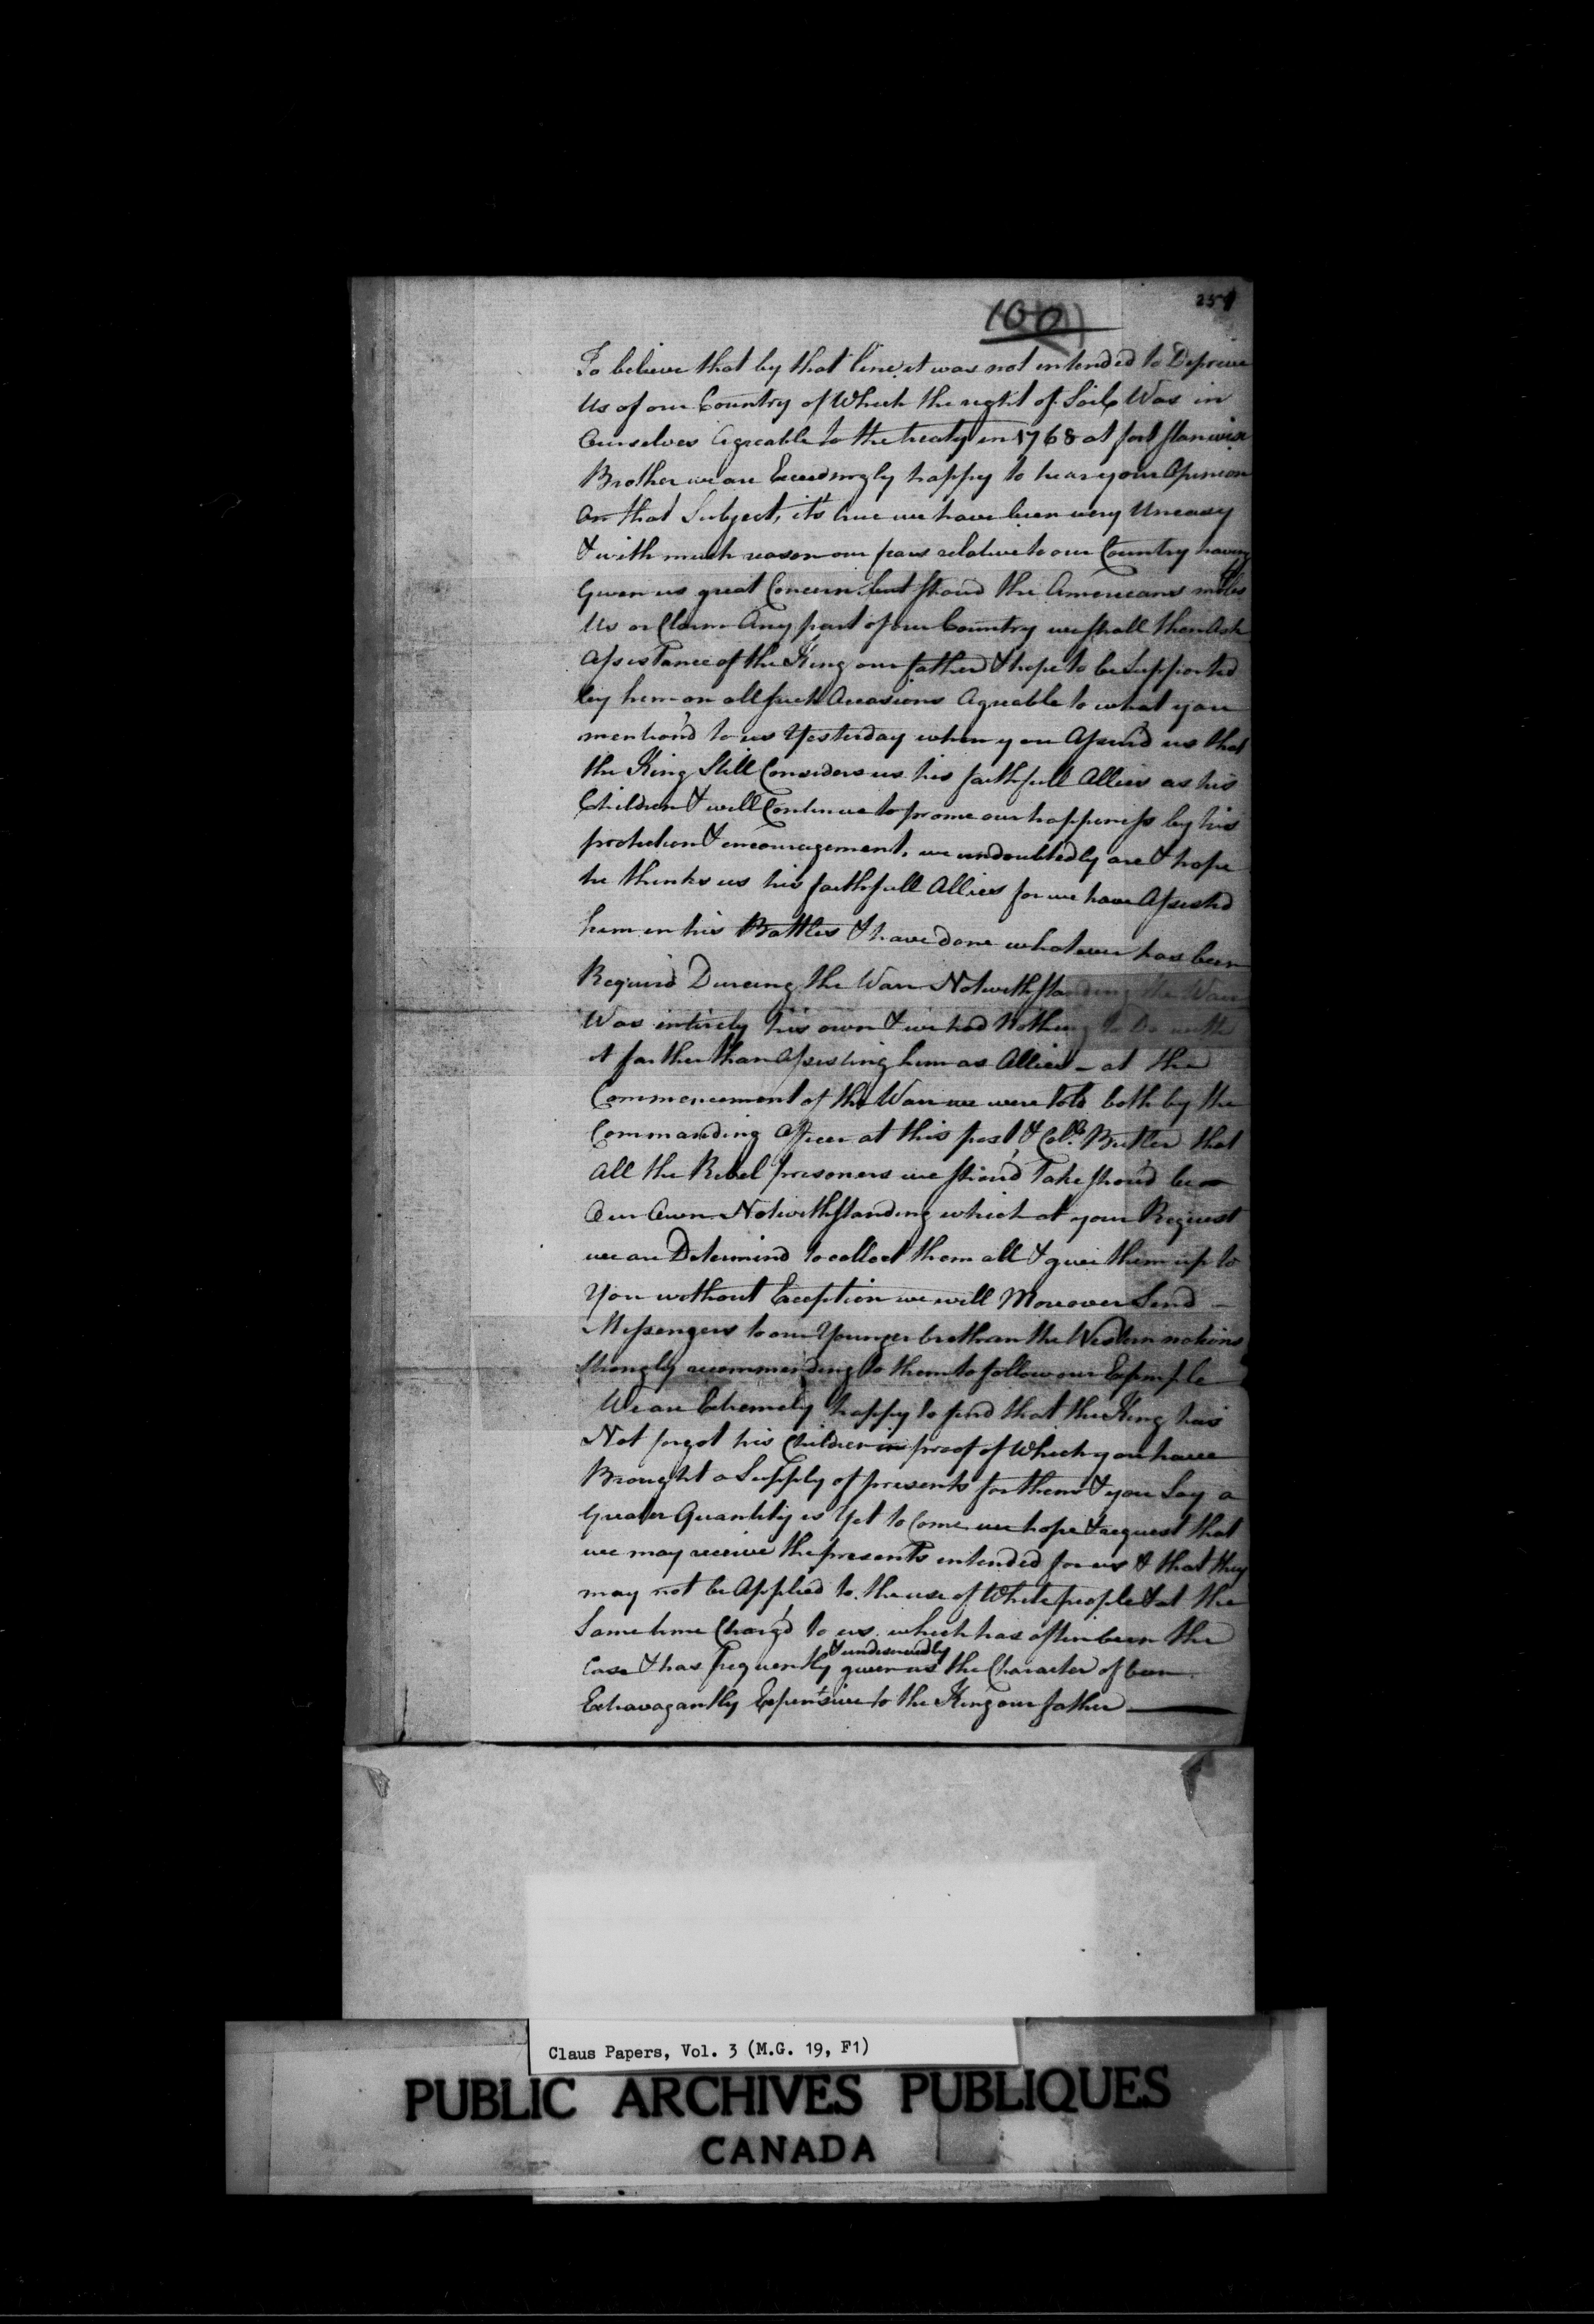 100
257
To believe that by that line, it was not intended to Deprive
Us of our Country of Which the right of Soil Was in
Ourselves Agreable to the treaty in 1768 at fort Stanwix
Brother we are Exceedingly happy to hear your Opinion
On that Subject, it's true we have been very Uneasy
& with much reason our fears relative to our Country having
Given us great Concern. but shou'd the Americans moles
Us or Claim Any part of our Country we shall then Ask
Assistance of the King our father & hope to be Supported
by him on all such Occasions Agreable to what you
mention'd to us Yesterday when you Assur'd us that
the King Still Considers us his faithfull Allies as his
Children & will Continue to prome our happiness by his
protection & encouragement, we undoubtedly are & hope
he thinks us his faithfull Allies for we have Assisted
him in his Battles & have done whatever has been
Requird Dureing the Warr Notwithstanding the Warr
Was intirely his own & we had Nothing to Do with
it farther than Assisting him as Allies - at the
Commencement of the Warr we were Told both by the
Commanding Officer at this post, & Coll. Butler that
All the Rebel prisoners we shou'd Take shou'd be
Our Own. Notwithstanding which at your Request
we are Determind to collect them all & give them up to
You without Exception we will Moreover Send -
Messengers to our Younger brethren the Western nations
Strongly recommending to them to follow our Exsmple
We are Extremely happy to find that the King has
Not forgot his Children in proof of Which you have
Brought a Supply of presents for them & you Say a
Greater Quantity is Yet to Come we hope & request that
we may receive the presents intended for us & that they
may not be Applied to the use of White people & at the
Same time Charg'd to us. which has often been the
Case & has frequently & undeservedly given us the Character of been
Extravagantly Expensive to the King our father
Claus Papers, Vol. 3 (M.G. 19, F1)
PUBLIC ARCHIVES PUBLIQUES
CANADA